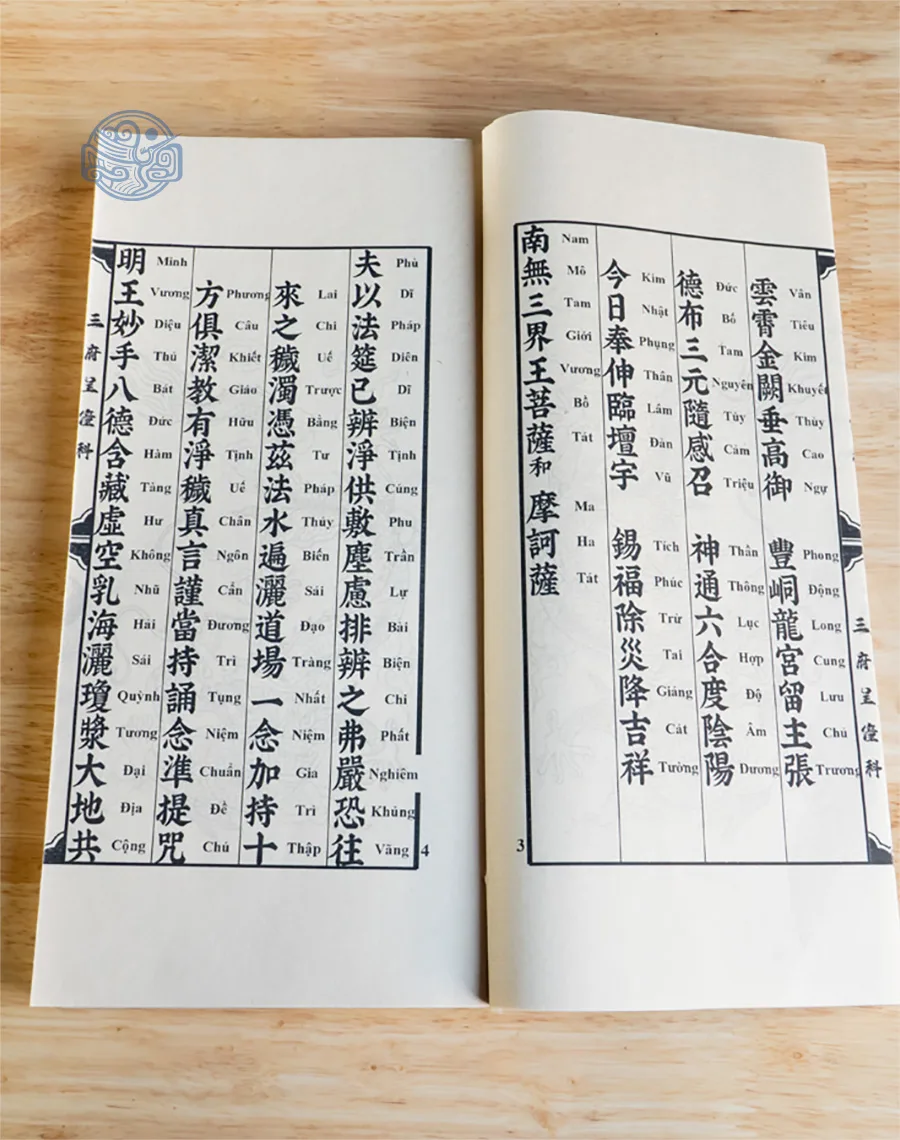 三府呈科
雲霄金闕垂高御 豐峒龍宮留主張
Vân Tiêu Kim Khuyết Thùy Cao Ngự Phong Động Long Cung Lưu Chủ Trương
德布三元隨感召 神通六合度陰陽
Đức Bố Tam Nguyên Tùy Cảm Triệu Thần Thông Lục Hợp Độ Âm Dương
今日奉伸臨壇宇 錫福除災降吉祥
Kim Nhật Phụng Thân Lâm Đàn Vũ Tích Phúc Trừ Tai Giáng Cát Tường
南無三界王菩薩和 摩訶薩
Nam Mô Tam Giới Vương Bồ Tát Ma Ha Tát
3
夫以法筵已辨淨供敷塵慮排辨之弗嚴恐往
Phù Dĩ Pháp Diên Dĩ Biện Tịnh Cúng Phu Trần Lự Bài Biện Chi Phất Nghiêm Khủng Vãng
來之穢濁憑茲法水遍灑道場一念加持十
Lai Chi Uế Trược Bằng Tư Pháp Thủy Biến Sái Đạo Tràng Nhất Niệm Gia Trì Thập
方俱潔教有淨穢真言謹當持誦念準提咒
Phương Câu Khiết Giáo Hữu Tịnh Uế Chân Ngôn Cẩn Đương Trì Tụng Niệm Chuẩn Đề Chú
明王妙手八德含藏虛空乳海灑瓊漿大地共
Minh Vương Diệu Thủ Bát Đức Hàm Tàng Hư Không Nhũ Hải Sái Quỳnh Tương Đại Địa Cộng
三府呈科
4